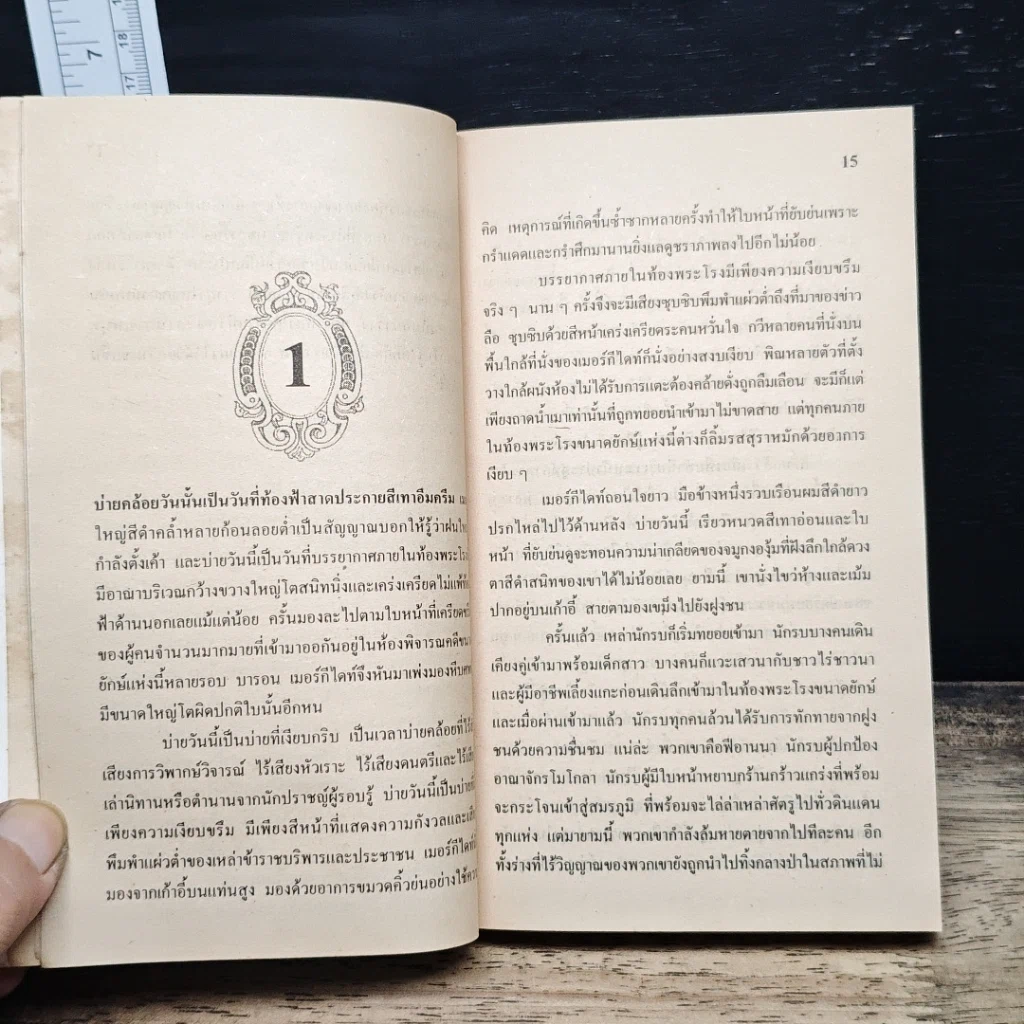 7
18
17
1
บ่ายคล้อยวันนั้นเป็นวันที่ท้องฟ้าสาดประกายสีเทาอึมครึม
ใหญ่สีดำคล้ำหลายก้อนลอยต่ำเป็นสัญญาณบอกให้รู้ว่าฝน
กำลังตั้งเค้า และบ่ายวันนี้เป็นวันที่บรรยากาศภายในท้องพระโรง
มีอาณาบริเวณกว้างขวางใหญ่โตสนิทนิ่งและเคร่งเครียดไม่แพ้
ฟ้าด้านนอกเลยแม้แต่น้อย ครั้นมองละไปตามใบหน้าที่เครียด
ของผู้คนจำนวนมากมายที่เข้ามาออกันอยู่ในห้องพิจารณคดี
ยักษ์แห่งนี้หลายรอบ บารอน เมอร์กีไดท์จึงหันมาเพ่งมองหีบ
มีขนาดใหญ่โตผิดปกติใบนั้นอีกหน
บ่ายวันนี้เป็นบ่ายที่เงียบกริบ เป็นเวลาบ่ายคล้อยที่ไร้
เสียงการวิพากษ์วิจารณ์ ไร้เสียงหัวเราะ ไร้เสียงดนตรีและไร้
เล่านิทานหรือตำนานจากนักปราชญ์ผู้รอบรู้ บ่ายวันนี้เป็นบ่าย
เพียงความเงียบขรึม มีเพียงสีหน้าที่แสดงความกังวลและ
พึมพำแผ่วต่ำของเหล่าข้าราชบริพารและประชาชน เมอร์กีไดท์
มองจากเก้าอี้บนแท่นสูง มองด้วยอาการขมวดคิ้วย่นอย่างใช้
15
คิด เหตุการณ์ที่เกิดขึ้นซ้ำซากหลายครั้งทำให้ใบหน้าที่ยับย่นเพราะ
กรำแดดและกรำศึกมานานยิ่งแลดูชราภาพลงไปอีกไม่น้อย
บรรยากาศภายในท้องพระโรงมีเพียงความเงียบขรึม
จริง ๆ นาน ๆ ครั้งจึงจะมีเสียงซุบซิบพึมพำแผ่วต่ำถึงที่มาของข่าว
ลือ ซุบซิบด้วยสีหน้าเคร่งเครียดระคนหวั่นใจ กวีหลายคนที่นั่งบน
พื้นใกล้ที่นั่งของเมอร์กีไดท์ก็นั่งอย่างสงบเงียบ พิณหลายตัวที่ตั้ง
วางใกล้ผนังห้องไม่ได้รับการแตะต้องคล้ายดั่งถูกลืมเลือน จะมีก็แต่
เพียงถาดน้ำเมาเท่านั้นที่ถูกทยอยนำเข้ามาไม่ขาดสาย แต่ทุกคนภาย
ในท้องพระโรงขนาดยักษ์แห่งนี้ต่างก็ลิ้มรสสุราหมักด้วยอาการ
เงียบ ๆ
เมอร์กีไดท์ถอนใจยาว มือข้างหนึ่งรวบเรือนผมสีดำยาว
ปรกไหล่ไปไว้ด้านหลัง บ่ายวันนี้ เรียวหนวดสีเทาอ่อนและใบ
หน้า ที่ยับย่นดูจะทอนความน่าเกลียดของจมูกงองุ้มที่ฝังลึกใกล้ดวง
ตาสีดำสนิทของเขาได้ไม่น้อยเลย ยามนี้ เขานั่งไขว่ห้างและเม้ม
ปากอยู่บนเก้าอี้ สายตามองเขม็งไปยังฝูงชน
ครั้นแล้ว เหล่านักรบก็เริ่มทยอยเข้ามา นักรบบางคนเดิน
เคียงคู่เข้ามาพร้อมเด็กสาว บางคนก็แวะเสวนากับชาวไร่ชาวนา
และผู้มีอาชีพเลี้ยงแกะก่อนเดินลึกเข้ามาในท้องพระโรงขนาดยักษ์
และเมื่อผ่านเข้ามาแล้ว นักรบทุกคนล้วนได้รับการทักทายจากฝูง
ชนด้วยความชื่นชม แน่ล่ะ พวกเขาคือฟีอานนา นักรบผู้ปกป้อง
อาณาจักรโมโกลา นักรบผู้มีใบหน้าหยาบกร้านกร้าวแกร่งที่พร้อม
จะกระโจนเข้าสู่สมรภูมิ ที่พร้อมจะไล่ล่าเหล่าศัตรูไปทั่วดินแดน
ทุกแห่ง แต่มายามนี้ พวกเขากำลังล้มหายตายจากไปทีละคน อีก
ทั้งร่างที่ไร้วิญญาณของพวกเขายังถูกนำไปทิ้งกลางป่าในสภาพที่ไม่